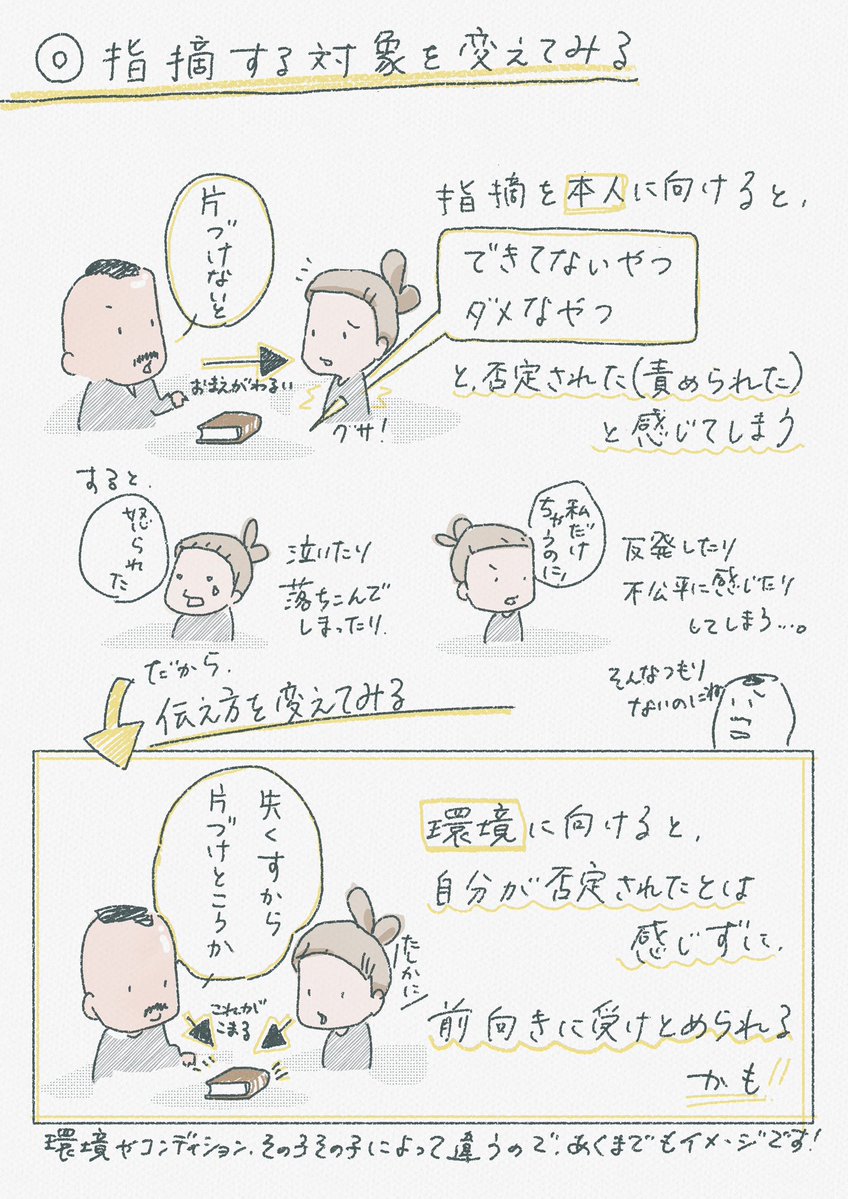 ◎指摘する対象を変えてみる
片づけないと
おまえがわるい
グサ!
指摘を本人に向けると、
できてないやつ
ダメなやつ
と、否定された(責められた)
と感じてしまう
すると、
怒られた
泣いたり
落ちこんで
しまったり、
私だけ
ちゃうのに!
反発したり
不公平に感じたり
してしまう…。
そんなつもり
ないのにね
だから、
伝え方を変えてみる
失くすから
片づけとこうか
これがこまる
たしかに
環境に向けると、
自分が否定されたとは
感じずに、
前向きに受けとめられる
かも!!
環境やコンディション、その子その子によって違うので、あくまでもイメージです!